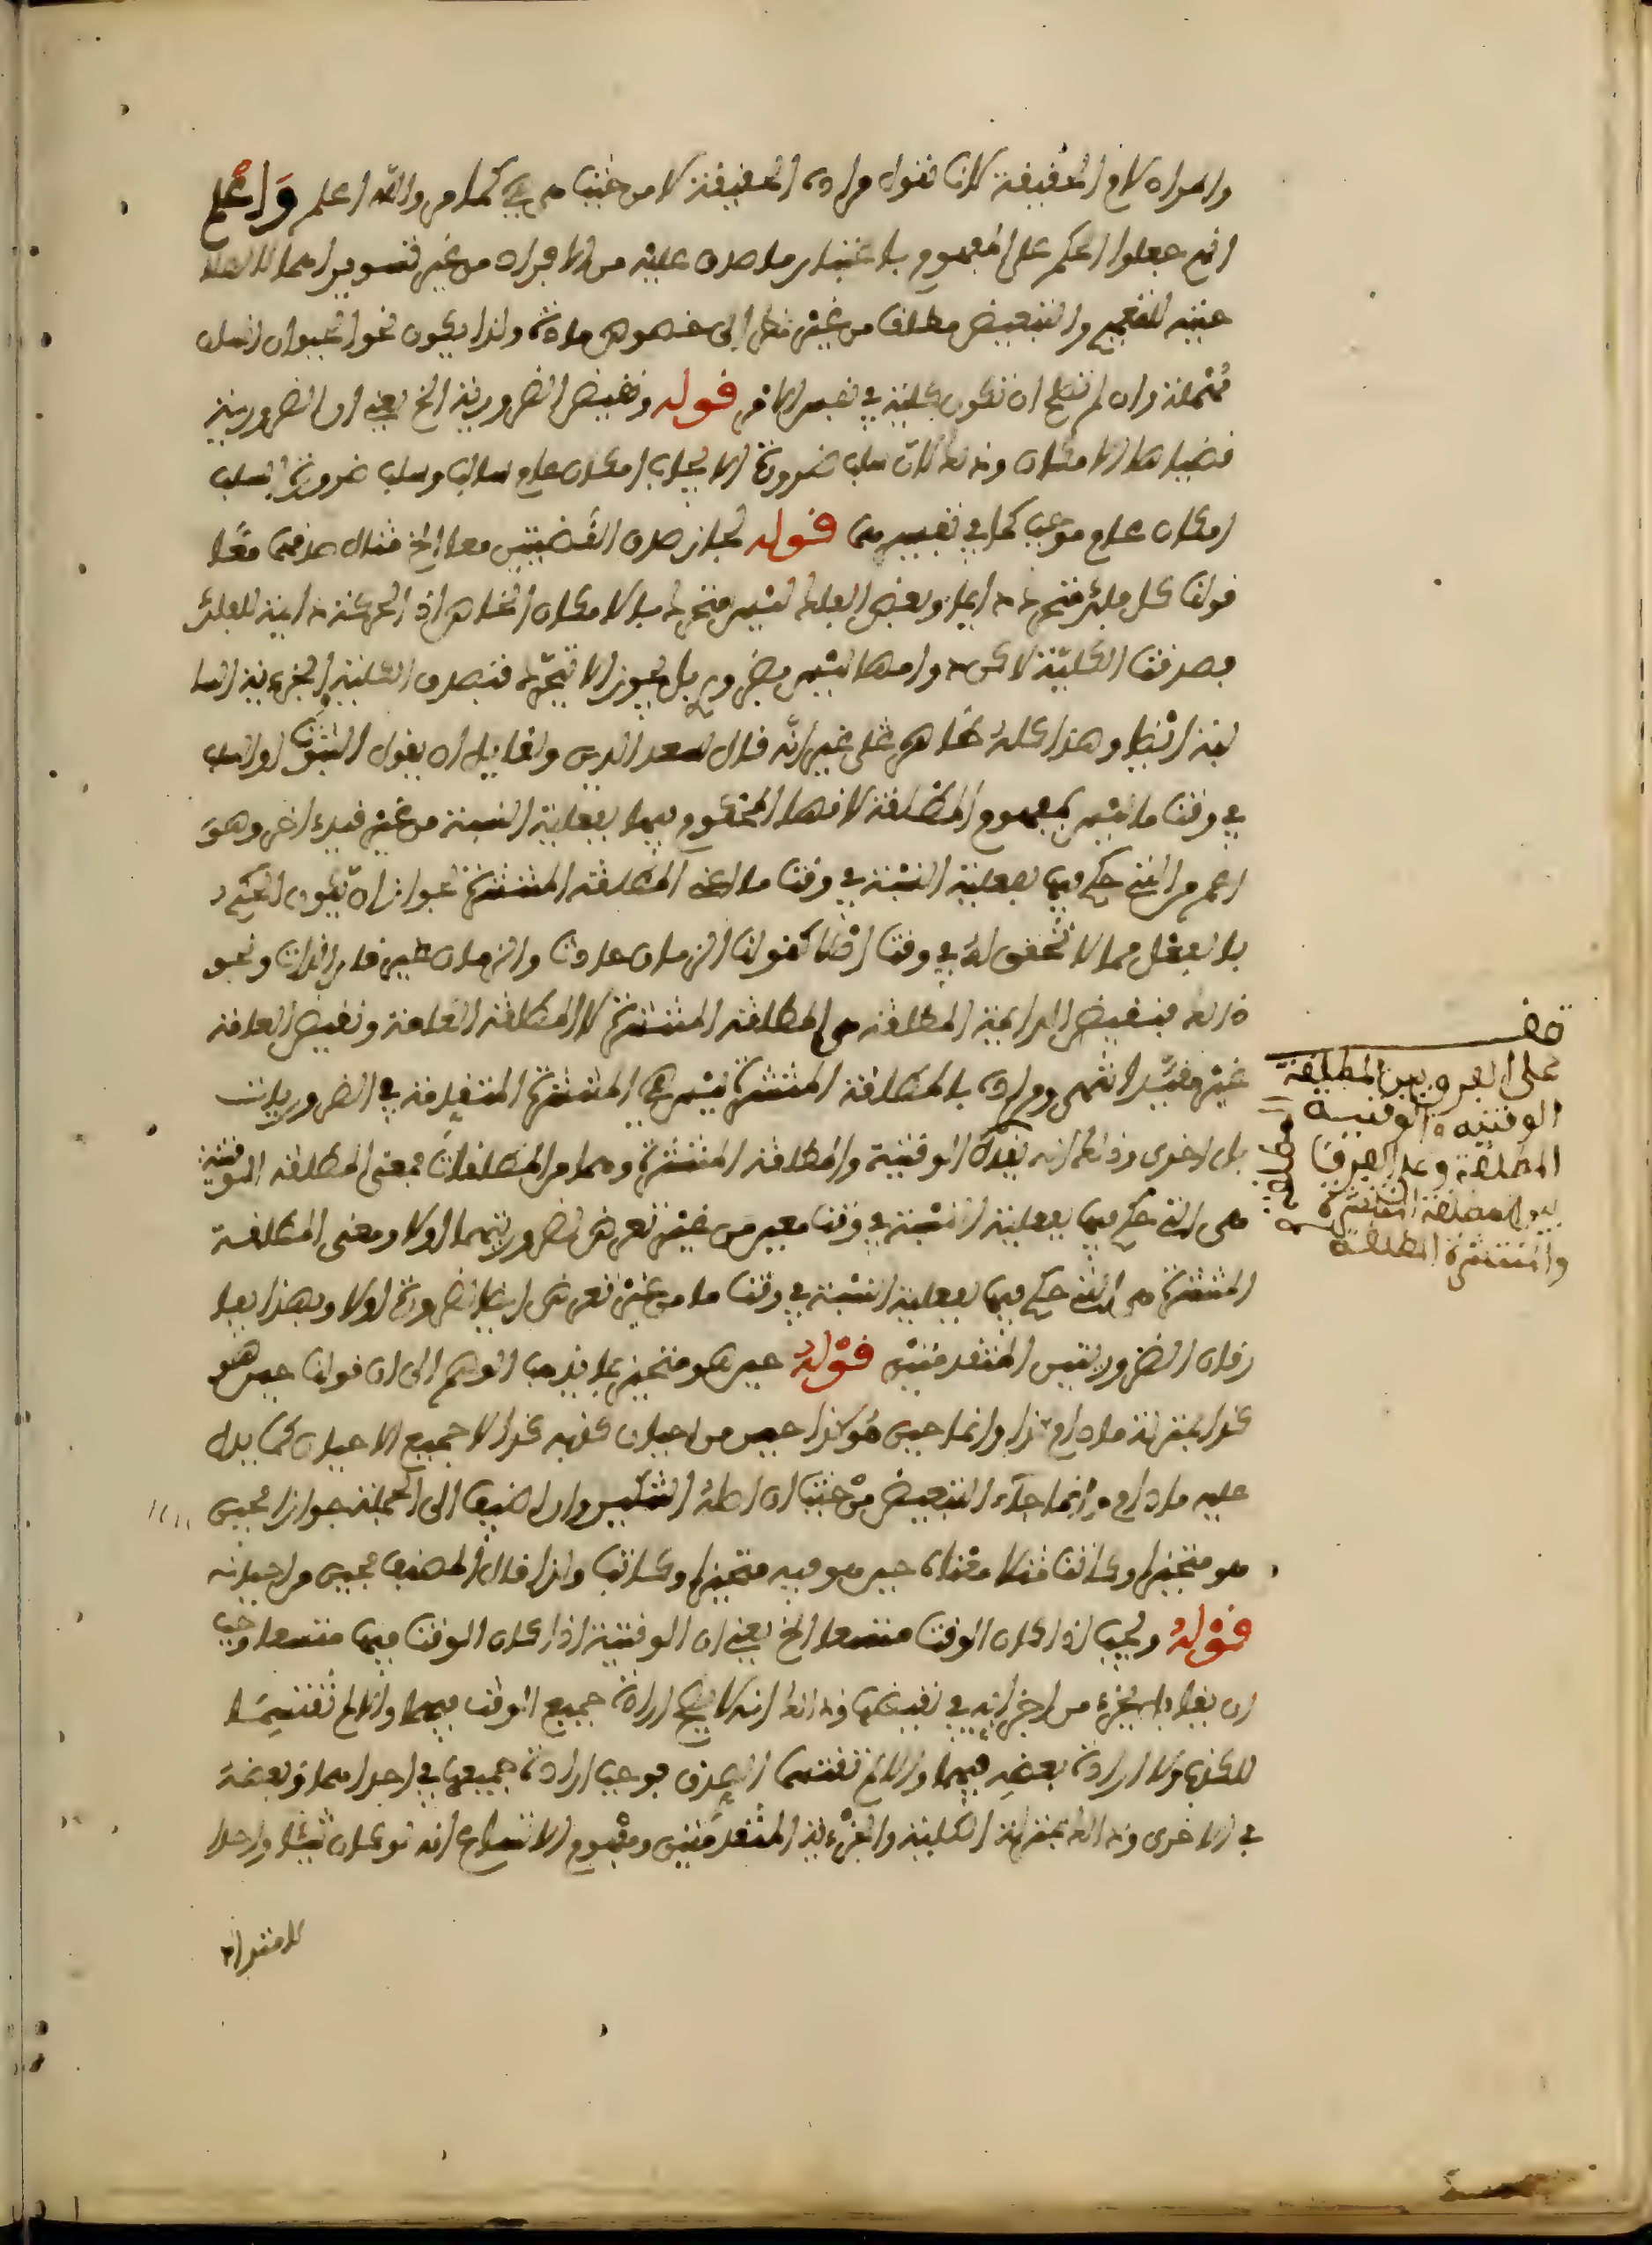 والمراد لازم الحقيقة لانا نقول مرادى الحقيقة لا من حيث هى هى كما مر والله اعلم واعلم
انهم جعلوا الحكم على المفهوم باعتبار ما صدق عليه من الافراد من غير تسوير اهمالا لصلا
حيته للتعميم والتبعيض مطلقا من غير نظر الى خصوص مادة ولذا يكون نحو الحيوان انسان
مهملة وان لم تصلح ان تكون كلية في نفس الامر قوله ونقيض الضرورية الخ يعني ان الضرورية
نقيضاها الامكان وذلك لان سلب ضرورة الايجاب امكان عام سالب وسلب ضرورة السلب
امكان عام موجب كما في تفسيرهما قوله لجاز صدق القضيتين معا الخ مثال صدقهما معا
قولنا كل فلك متحرك دايما وبعض الفلك ليس متحركا بالامكان الخاص اذ الحركة دايمة للفلك
فصدقت الكلية لاكن دوامها ليس بضروري بل يجوز الا يتحرك فتصدق الكلية والجزءية السا
لبة ايضا وهذا كله ظاهر على غير انه قال سعد الدين ولقايل ان يقول الثبوت او السلب
في وقت ما ليس بمفهوم المطلقة لانها المحكوم فيها بفعلية النسبة من غير قيد اخر وهو
اعم من التي حكم فيها بفعلية النسبة في وقت ما اعني المطلقة المنتشرة لجواز ان يكون الحكم
بالفعل مما لا تحقق له في وقت اصلا كقولنا الزمان حادث والزمان غير قار الذات ونحو
ذلك فنقيض الدايمة المطلقة هي المطلقة المنتشرة لا المطلقة العامة ونقيض العامة
غير مقيد انتهى ومراده بالمطلقة المنتشرة ليس هي المنتشرة المتقدمة في الضروريات
بل اخرى وذلك انه بعدك الوقتية والمطلقة المنتشرة وهما من المطلقات فمعنى المطلقة الوقتية
هى التي حكم فيها بفعلية النسبة في وقت معين من غير تعرض لضروريتهما اولا ومعنى المطلقة
المنتشرة هي التي حكم فيها بفعلية النسبة في وقت ما من غير تعرض ايضا لضرورة اولا وبهذا يفا
رقان الضروريتين المتقدمتين قوله حين هو متحيز بما يذهب الوهم الى ان قولنا حين هو
كذا بمنزلة مادام كذا وانما حين هو كذا حين من احيان كونه كذا لا جميع الاحيان كما يدل
عليه مادام وانما جاء التبعيض من حيث ان اصله التنكير وان اضيف الى الجملة جوازا فحين
هو متحيز او كاتب مثلا معناه حين هو فيه متحيز او كاتب ولذا قال المصنف فحين من احيانه
قوله ويجب اذا كان الوقت متسعا الخ يعني ان الوقتية اذا كان الوقت فيها متسعا وجب
ان يقيد بجزء من اجزايه في نقيضها وذلك انه لا يصح ارادة جميع الوقت فيهما والا لم تقتسما
الكذب ولا ارادة بعضه فيهما والا لم تقتسما الصدق فوجب ارادة جميعها في احداهما وبعضه
في الاخرى وذلك بمنزلة الكلية والجزءية المتقدمتين ومفهوم الاتساع انه لو كان شيئا واحدا
قف
على الفرق بين المطلقة
الوقتية والوقتية
المطلقة وعلى الفرق
بين المطلقة المنتشرة
والمنتشرة المطلقة